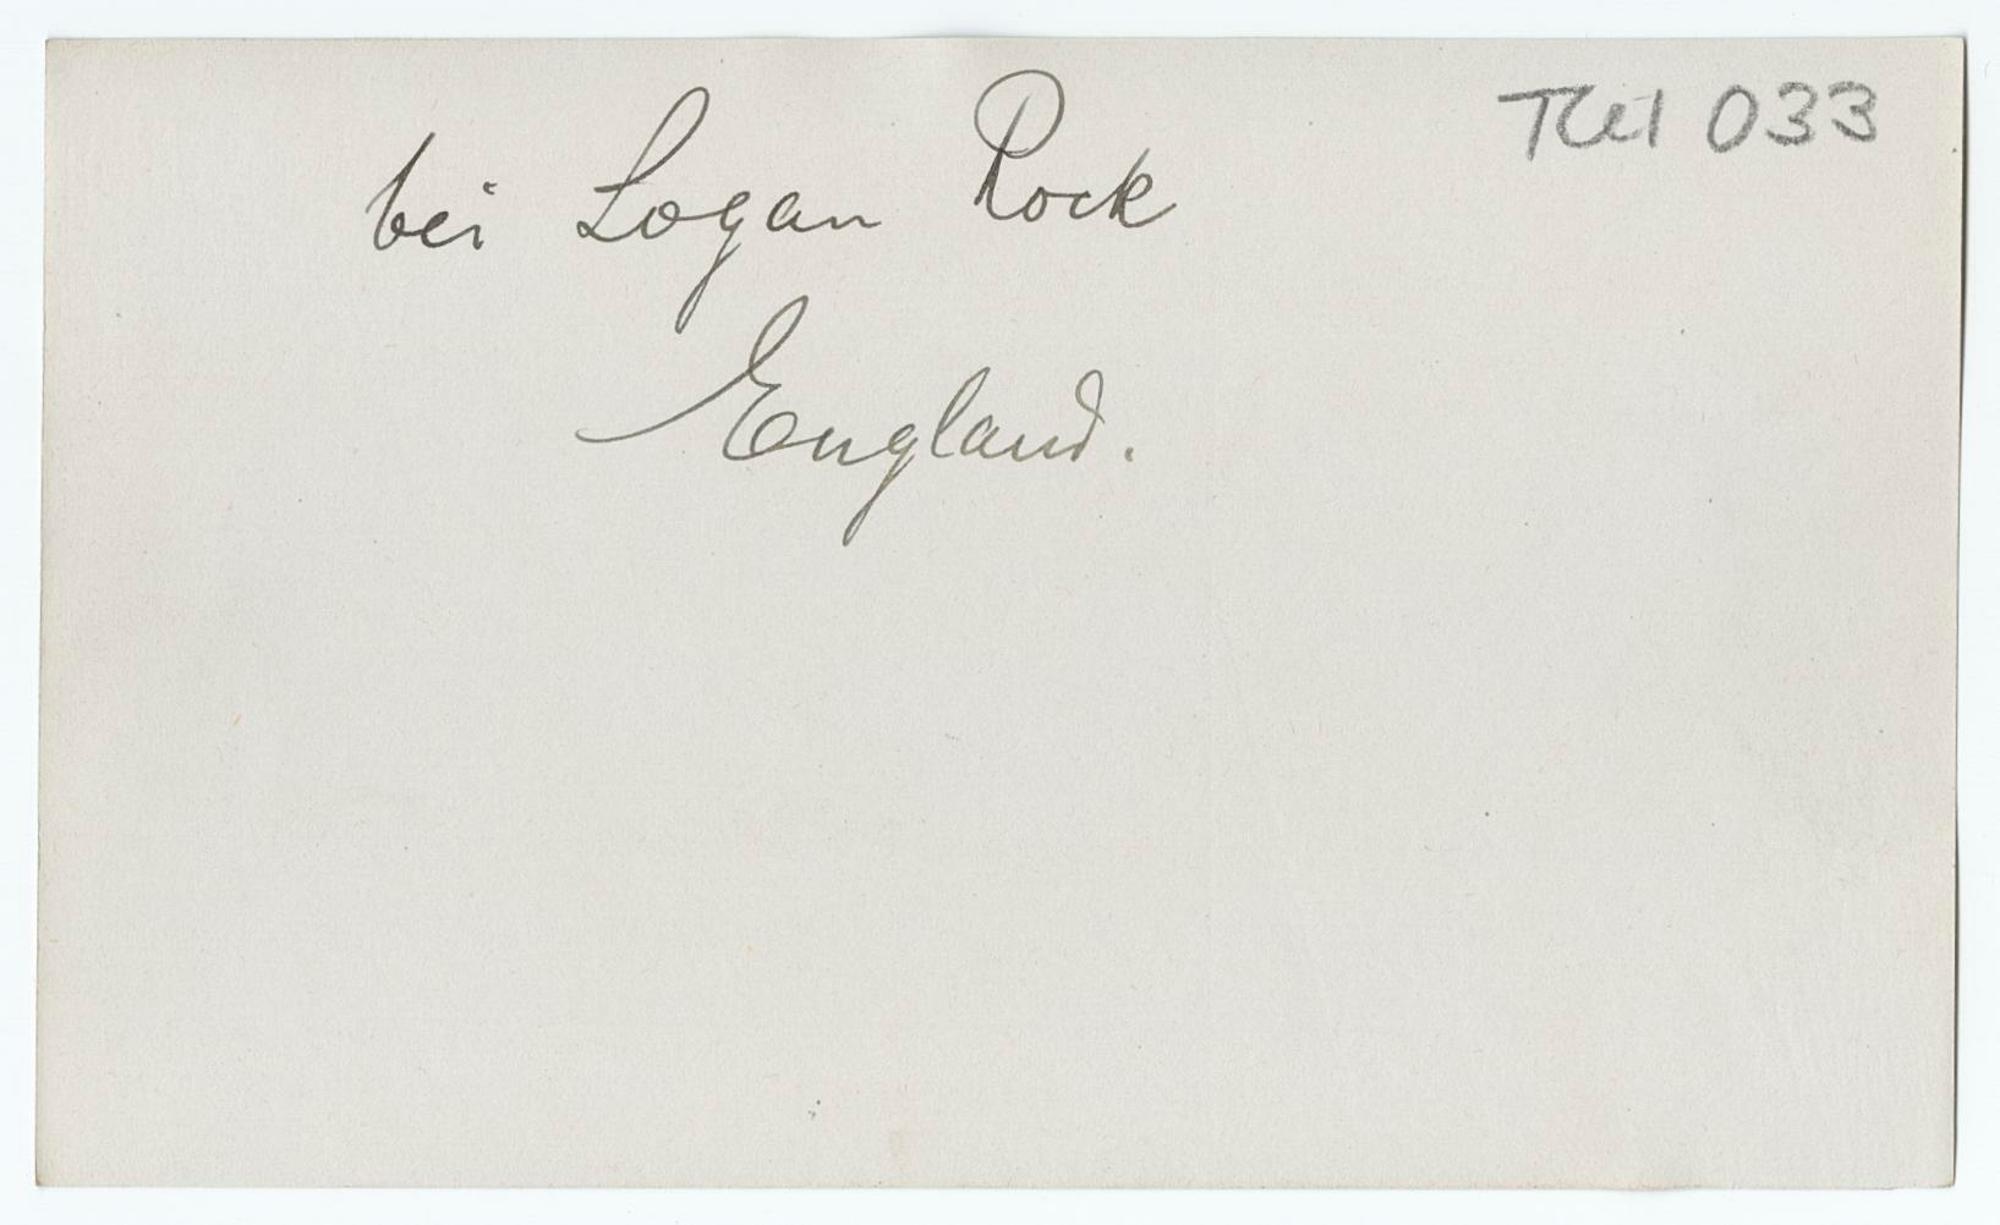 TCel 033
bei Logan Rock
England.